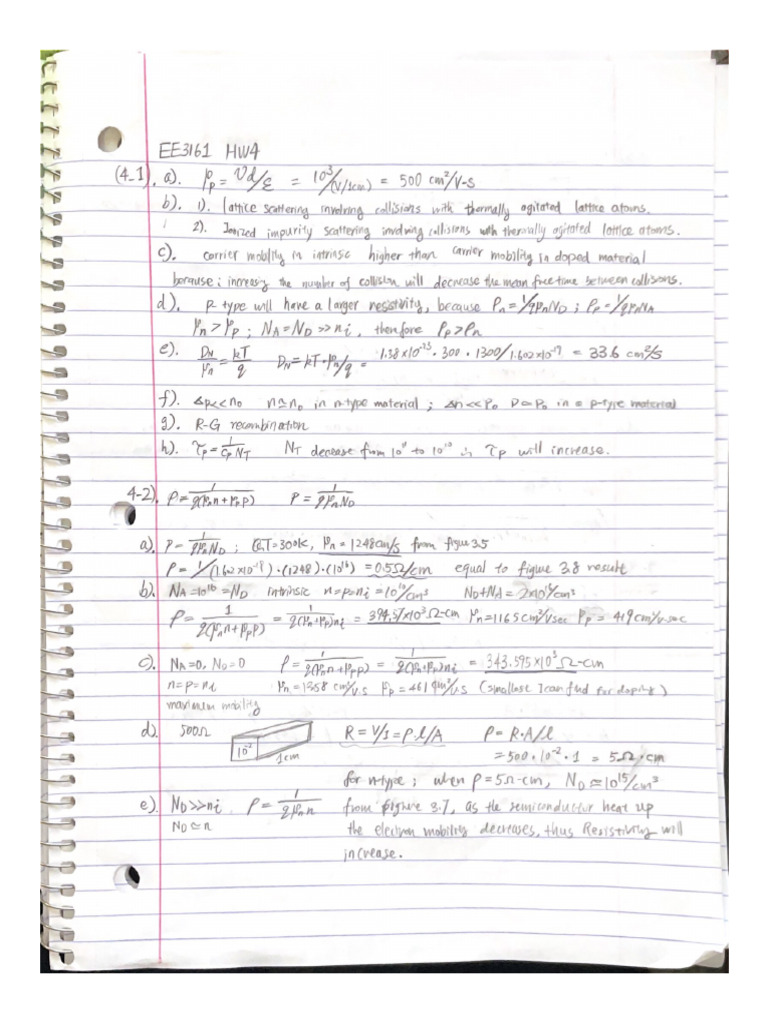 EE3161 HW4
(4-1). a). μp = Vd/ε = 10³/(V/1cm) = 500 cm²/V-S
b). 1). lattice scattering involving collisions with thermally agitated lattice atoms.
2). Ionized impurity scattering involving collisions with thermally agitated lattice atoms.
c). carrier mobility in intrinsic higher than carrier mobility in doped material
because: increasing the number of collision will decrease the mean free time between collisions.
d). P-type will have a larger resistivity, because ρn = 1/qμnND ; ρp = 1/qμpNA
μn > μp ; NA = ND >> ni, therefore ρp > ρn
e). DN/μn = kT/q DN = kT·μn/q = 1.38×10⁻²³ · 300 · 1300/1.602×10⁻¹⁹ = 33.6 cm²/S
f). Δp << n₀ n ≃ n₀ in n-type material ; Δn << p₀ p ≃ p₀ in p-type material
g). R-G recombination
h). τp = 1/CpNT NT decrease from 10¹¹ to 10¹⁰ ∴ τp will increase.
4-2). ρ = 1/q(μnn + μpp) ρ = 1/qμnND
a). ρ = 1/qμnND ; T = 300k, μn = 1248cm/s from figure 3.5
ρ = 1/(1.62×10⁻¹⁹)·(1248)·(10¹⁶) = 0.5Ω/cm equal to figure 3.8 result
b). NA = 10¹⁶ = ND intrinsic n=p=ni = 10¹⁰/cm³ ND+NA = 2×10¹⁶/cm³
ρ = 1/q(μnn + μpp) = 1/q(μn+μp)ni = 394.57×10³ Ω-cm μn = 1165 cm²/Vsec μp = 419 cm²/v.sec
c). NA=0, ND=0 ρ = 1/q(μnn + μpp) = 1/q(μn+μp)ni = 343.595×10³ Ω-cm
n=p=ni μn = 1358 cm²/v.s μp = 461 cm²/v.s (smallest I can find for doping)
maximum mobility
d). 500Ω 10⁻² 1cm R = V/I = ρ.l/A ρ = R·A/l
= 500 · 10⁻² · 1 = 5Ω·cm
for n-type ; when ρ = 5Ω-cm, ND ≃ 10¹⁵/cm³
e). ND >> ni ρ = 1/qμnn from figure 3.7, as the semiconductor heat up
ND ≃ n the electron mobility decreases, thus Resistivity will
increase.